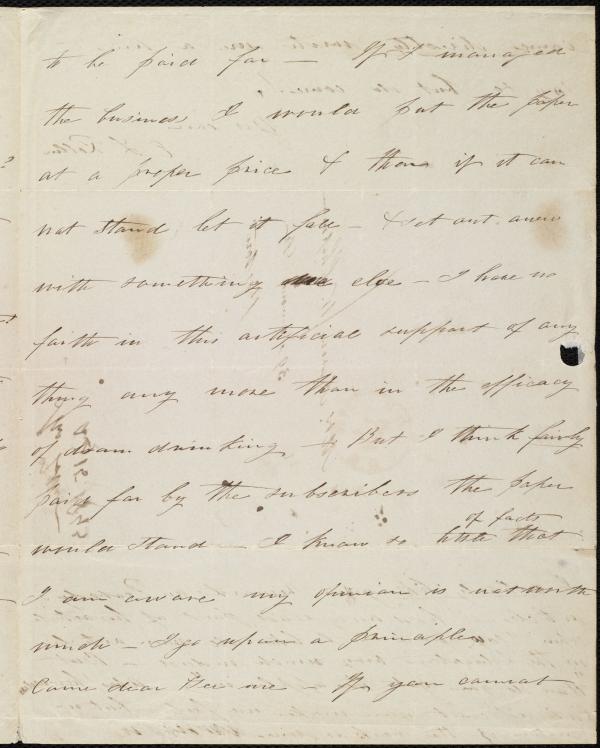 to be paid for — If I managed
the business I would put the paper
at a proper price & then if it can
not stand let it fall — & set out anew
with something else — I have no
faith in this artificial support of any
thing any more than in the efficacy
of dram drinking — But I think fairly
paid for by the subscribers the paper
of facts
would stand — I know so little that
I am aware my opinion is not worth
much — I go upon a principle
Come dear see me If you cannot